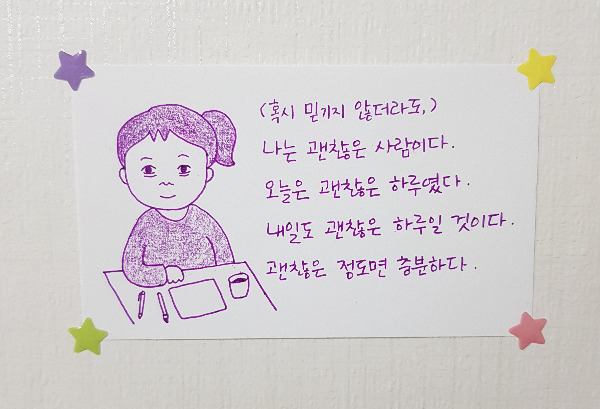 (혹시 믿기지 않더라도,)
나는 괜찮은 사람이다.
오늘은 괜찮은 하루였다.
내일도 괜찮은 하루일 것이다.
괜찮은 정도면 충분하다.